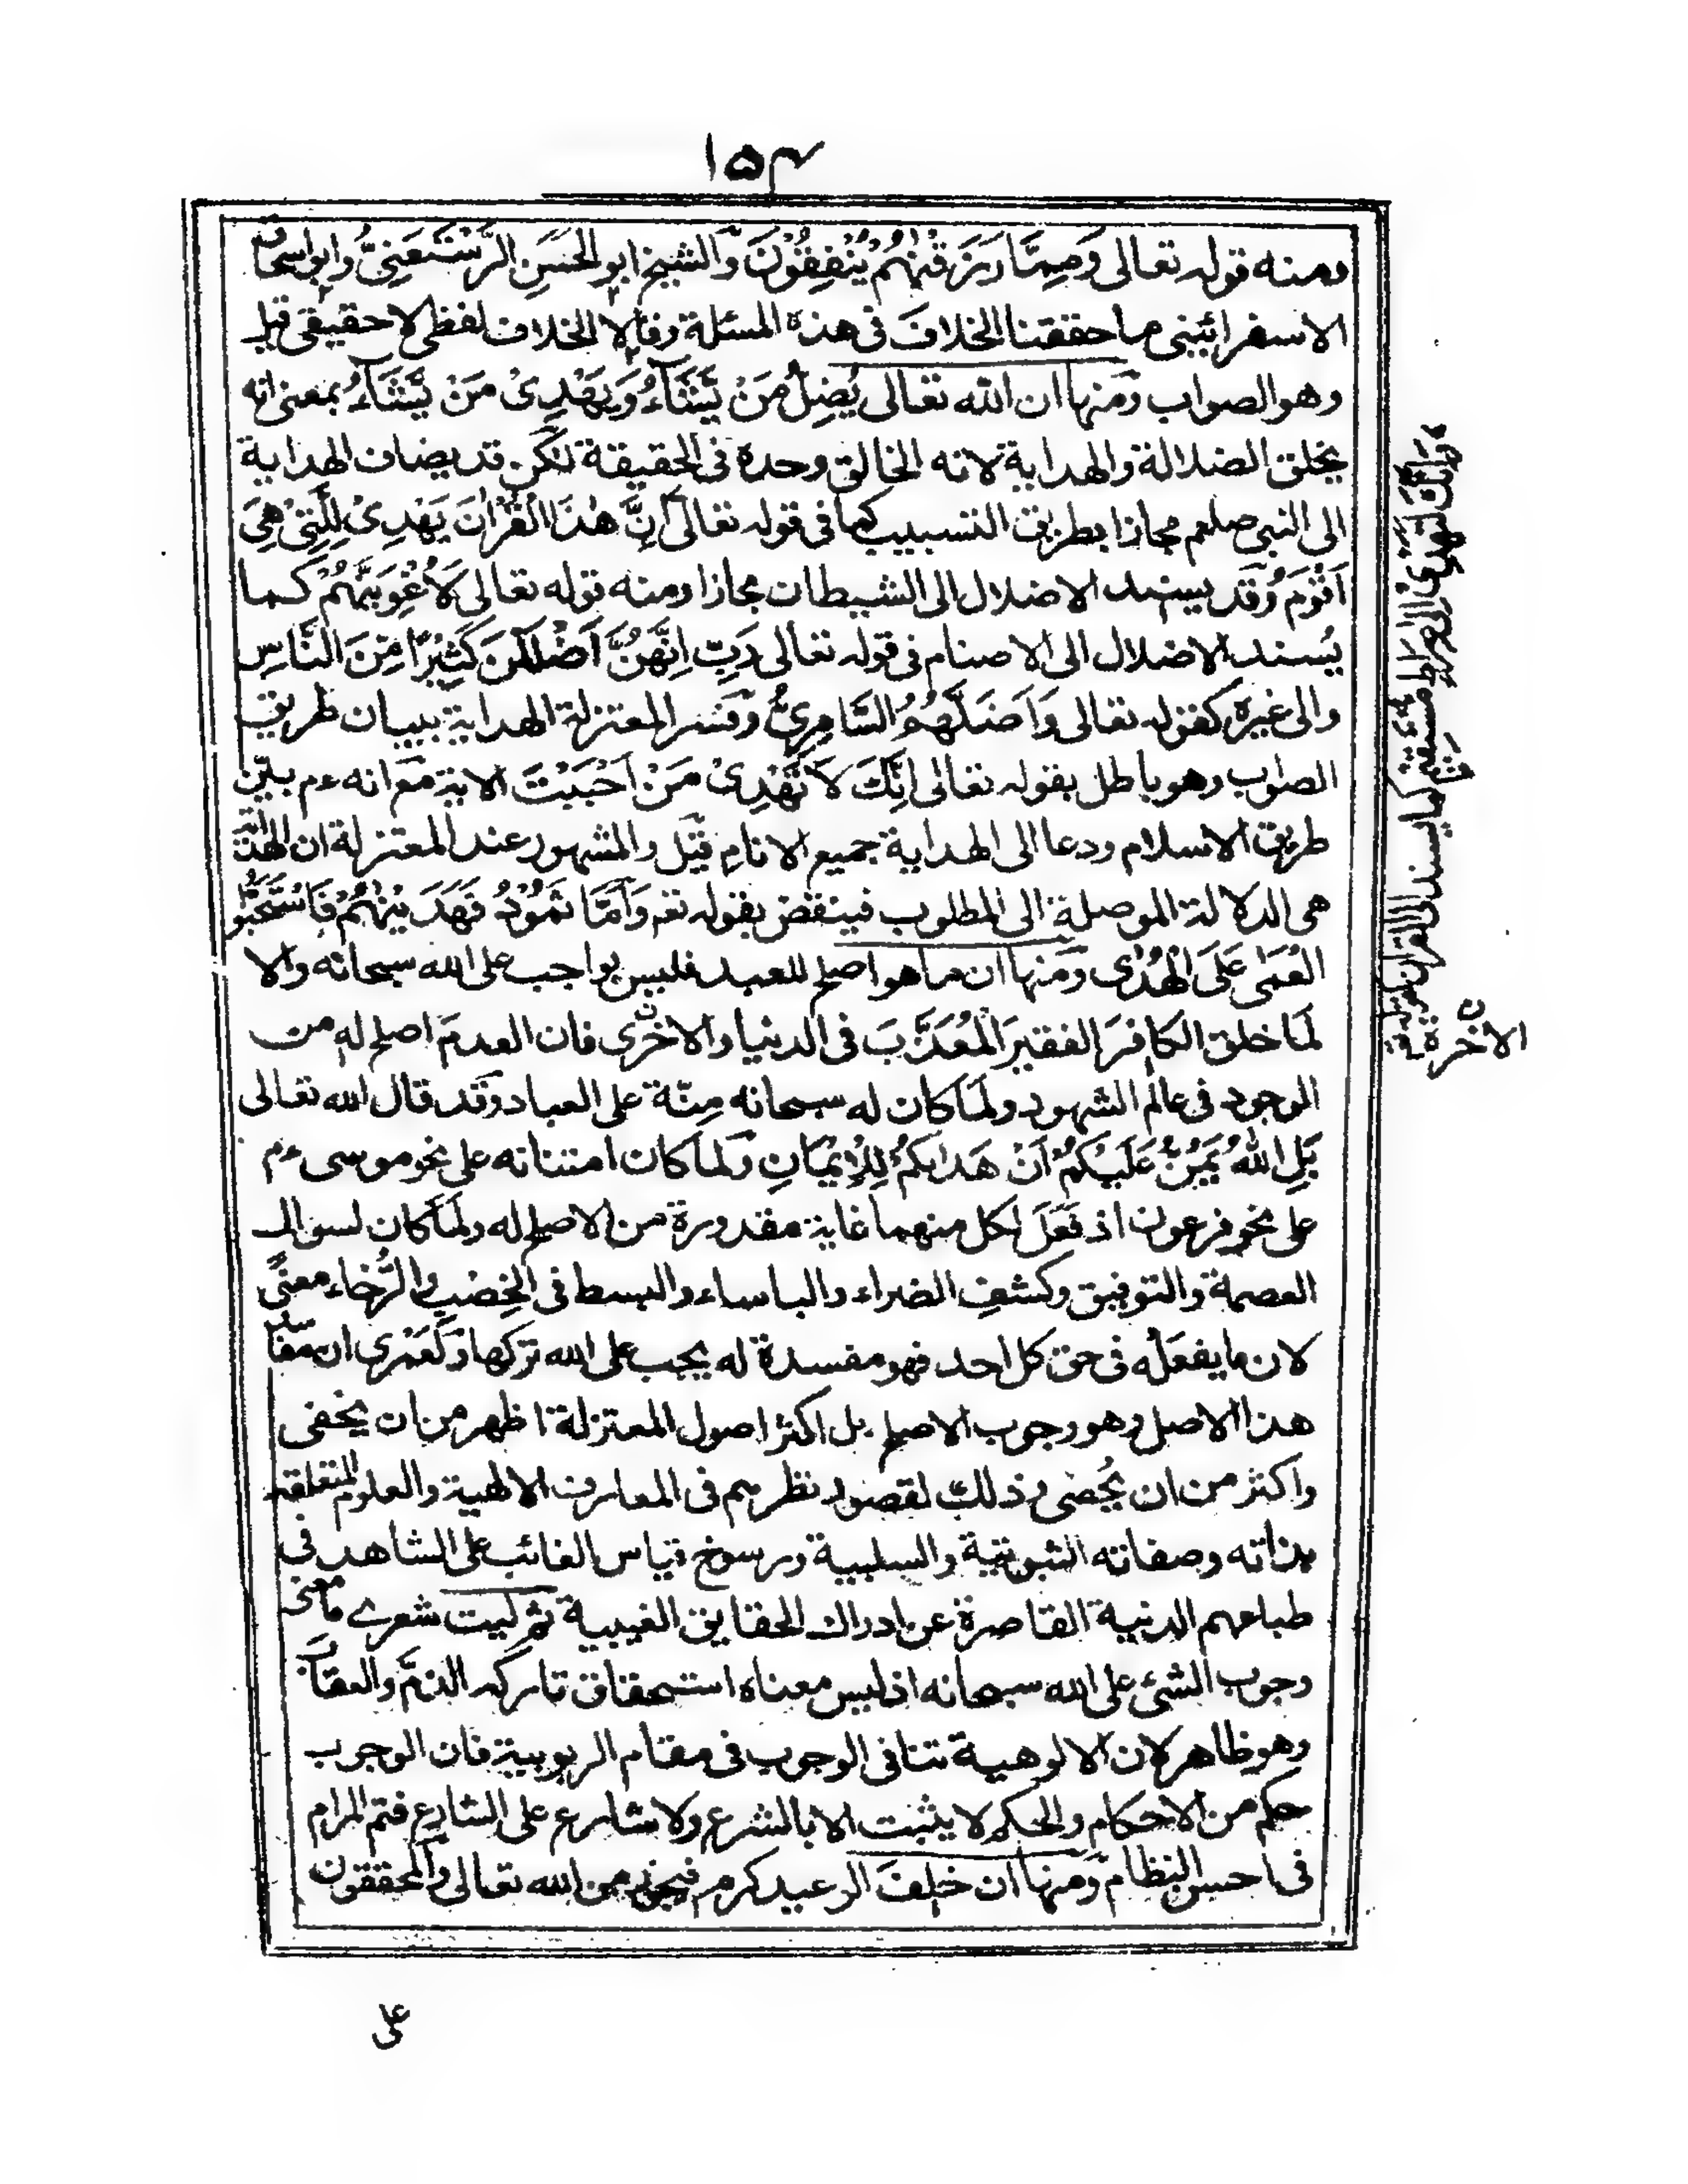 ۱۵۴
ومنه قوله تعالى وَمِمَّا رَزَقْنٰهُمْ يُنْفِقُوْنَ وَالشيخ ابو الحَسَنِ الرُّسْتَغفَنِىُّ وابو اسحاق
الاسفرائينى ما حققنا الخلافَ فى هذه المسئلة وقالا الخلاف لفظى لا حقيقى قيل
وهو الصواب ومنها ان الله تعالى يُضِلُّ مَنْ يَّشَآءُ وَيَهْدِىْ مَنْ يَّشَآءُ بمعنى انه
يخلق الضلالة والهداية لانه الخالق وحده فى الحقيقة لكن قد يضاف الهداية
الى النبى صلعم مجازا بطريق التسبيب كما فى قوله تعالى اِنَّ هٰذَا الْقُرْاٰنَ يَهْدِىْ لِلَّتِىْ هِىَ
اَقْوَمُ وقد يسند الاضلال الى الشيطان مجازا ومنه قوله تعالى لَاُغْوِيَنَّهُمْ كما
يُسند الاضلال الى الاصنام فى قوله تعالى رَبِّ اِنَّهُنَّ اَضْلَلْنَ كَثِيْرًا مِّنَ النَّاسِ
والى غيره كقوله تعالى وَاَضَلَّهُمُ السَّامِرِىُّ وفسر المعتزلة الهداية ببيان طريق
الصواب وهو باطل بقوله تعالى اِنَّكَ لَا تَهْدِىْ مَنْ اَحْبَبْتَ الاية مع انه ءم بيّن
طريق الاسلام ودعا الى الهداية جميع الانام قيل والمشهور عند المعتزلة ان الهداية
هى الدلالة الموصلة الى المطلوب فينقض بقوله تعم وَاَمَّا ثَمُوْدُ فَهَدَيْنٰهُمْ فَاسْتَحَبُّوا
الْعَمٰى عَلَى الْهُدٰى ومنها ان ما هو اصلح للعبد فليس بواجب على الله سبحانه والا
لَمَا خلق الكافرَ الفقيرَ المُعَذَّبَ فى الدنيا والاخرى فان العدمَ اصلح له من
الوجود فى عالم الشهود ولما كان له سبحانه مِنّة على العباد وقد قال الله تعالى
بَلِ اللّٰهُ يَمُنُّ عَلَيْكُمْ اَنْ هَدٰىكُمْ لِلْاِيْمَانِ ولما كان امتنانه على نحو موسى ءم
على نحو فرعون اذ فَعَلَ لكل منهما غاية مقدورة من الاصلح له ولما كان لسوال
العصمة والتوفيق وكشفِ الضراء والباساء والبسط فى الخِصْب والرُّخاء معنًى
لان ما يفعله فى حق كل احد فهو مفسدة له يجب على الله تركها ولعَمْرى ان مفاسد
هذا الاصل وهو وجوب الاصلح بل اكثر اصول المعتزلة اظهر من ان يخفى
واكثر من ان يُحصى وذلك لقصور نظرهم فى المعارف الالهية والعلوم المتعلقة
بذاته وصفاته الثبوتية والسلبية ورسوخ قياس الغائب على الشاهد فى
طباعهم الدنية القاصرة عن ادراك الحقايق الغيبية ثم ليت شعرے ما معنى
وجوب الشئ على الله سبحانه اذ ليس معناه استحقاق تاركه الذمّ والعقاب
وهو ظاهر لان الالوهية تنافى الوجوب فى مقام الربوبية فان الوجوب
حكم من الاحكام والحكم لا يثبت الا بالشرع ولا شارع على الشارع فتم المرام
فى احسن النظام ومنها ان خلفَ الوعيد كرم فيجوز من الله تعالى والمحققون
على
وَاِنَّكَ لَتَهْدِىْ اِلٰى صِرَاطٍ مُّسْتَقِيْمٍ كما يسند الى القران كقوله
الاخرة